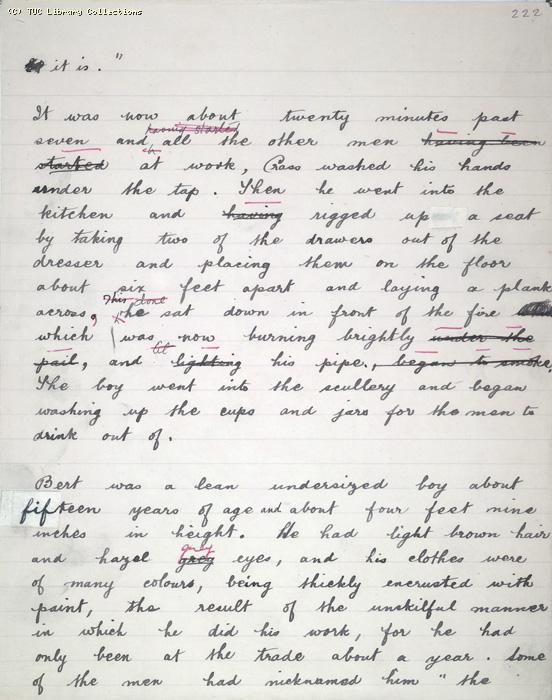 (C) TUC Library Collections
222
it is."
It was now about twenty minutes past
having started
seven and all the other men having been
started at work, Crass washed his hands
under the tap. Then he went into the
kitchen and having rigged up a seat
by taking two of the drawers out of the
dresser and placing them on the floor
about six feet apart and laying a plank
This done
across, he sat down in front of the fire
which was now burning brightly under the
lit
pail, and lighting his pipe, began to smoke.
The boy went into the scullery and began
washing up the cups and jars for the men to
drink out of.
Bert was a lean undersized boy about
fifteen years of age and about four feet nine
inches in height. He had light brown hair
grey
and hazel grey eyes, and his clothes were
of many colours, being thickly encrusted with
paint, the result of the unskilful manner
in which he did his work, for he had
only been at the trade about a year. Some
of the men had nicknamed him "the